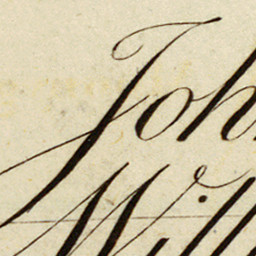 Joh
Will